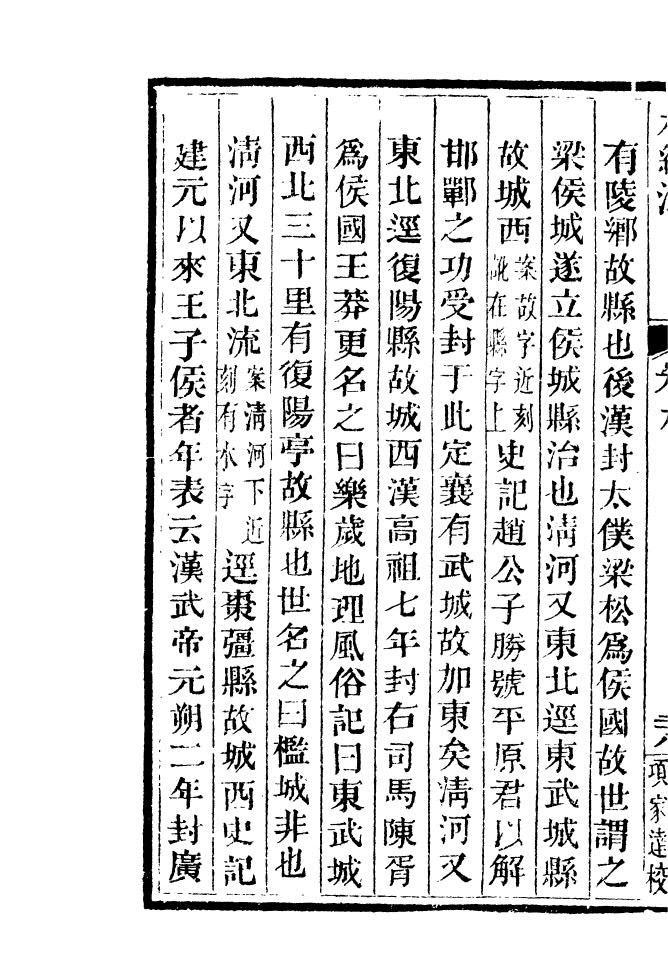 有陵鄉故縣也後漢封太僕梁松爲侯國故世謂之
梁侯城遂立侯城縣治也清河又東北逕東武城縣
故城西案故字近刻訛在縣字上史記趙公子勝號平原君以解
邯鄲之功受封于此定襄有武城故加東矣清河又
東北逕復陽縣故城西漢高祖七年封右司馬陳胥
爲侯國王莽更名之曰樂歲地理風俗記曰東武城
西北三十里有復陽亭故縣也世名之曰檻城非也
清河又東北流案清河下近刻有水字逕棗彊縣故城西史記
建元以來王子侯者年表云漢武帝元朔二年封廣
項家達校